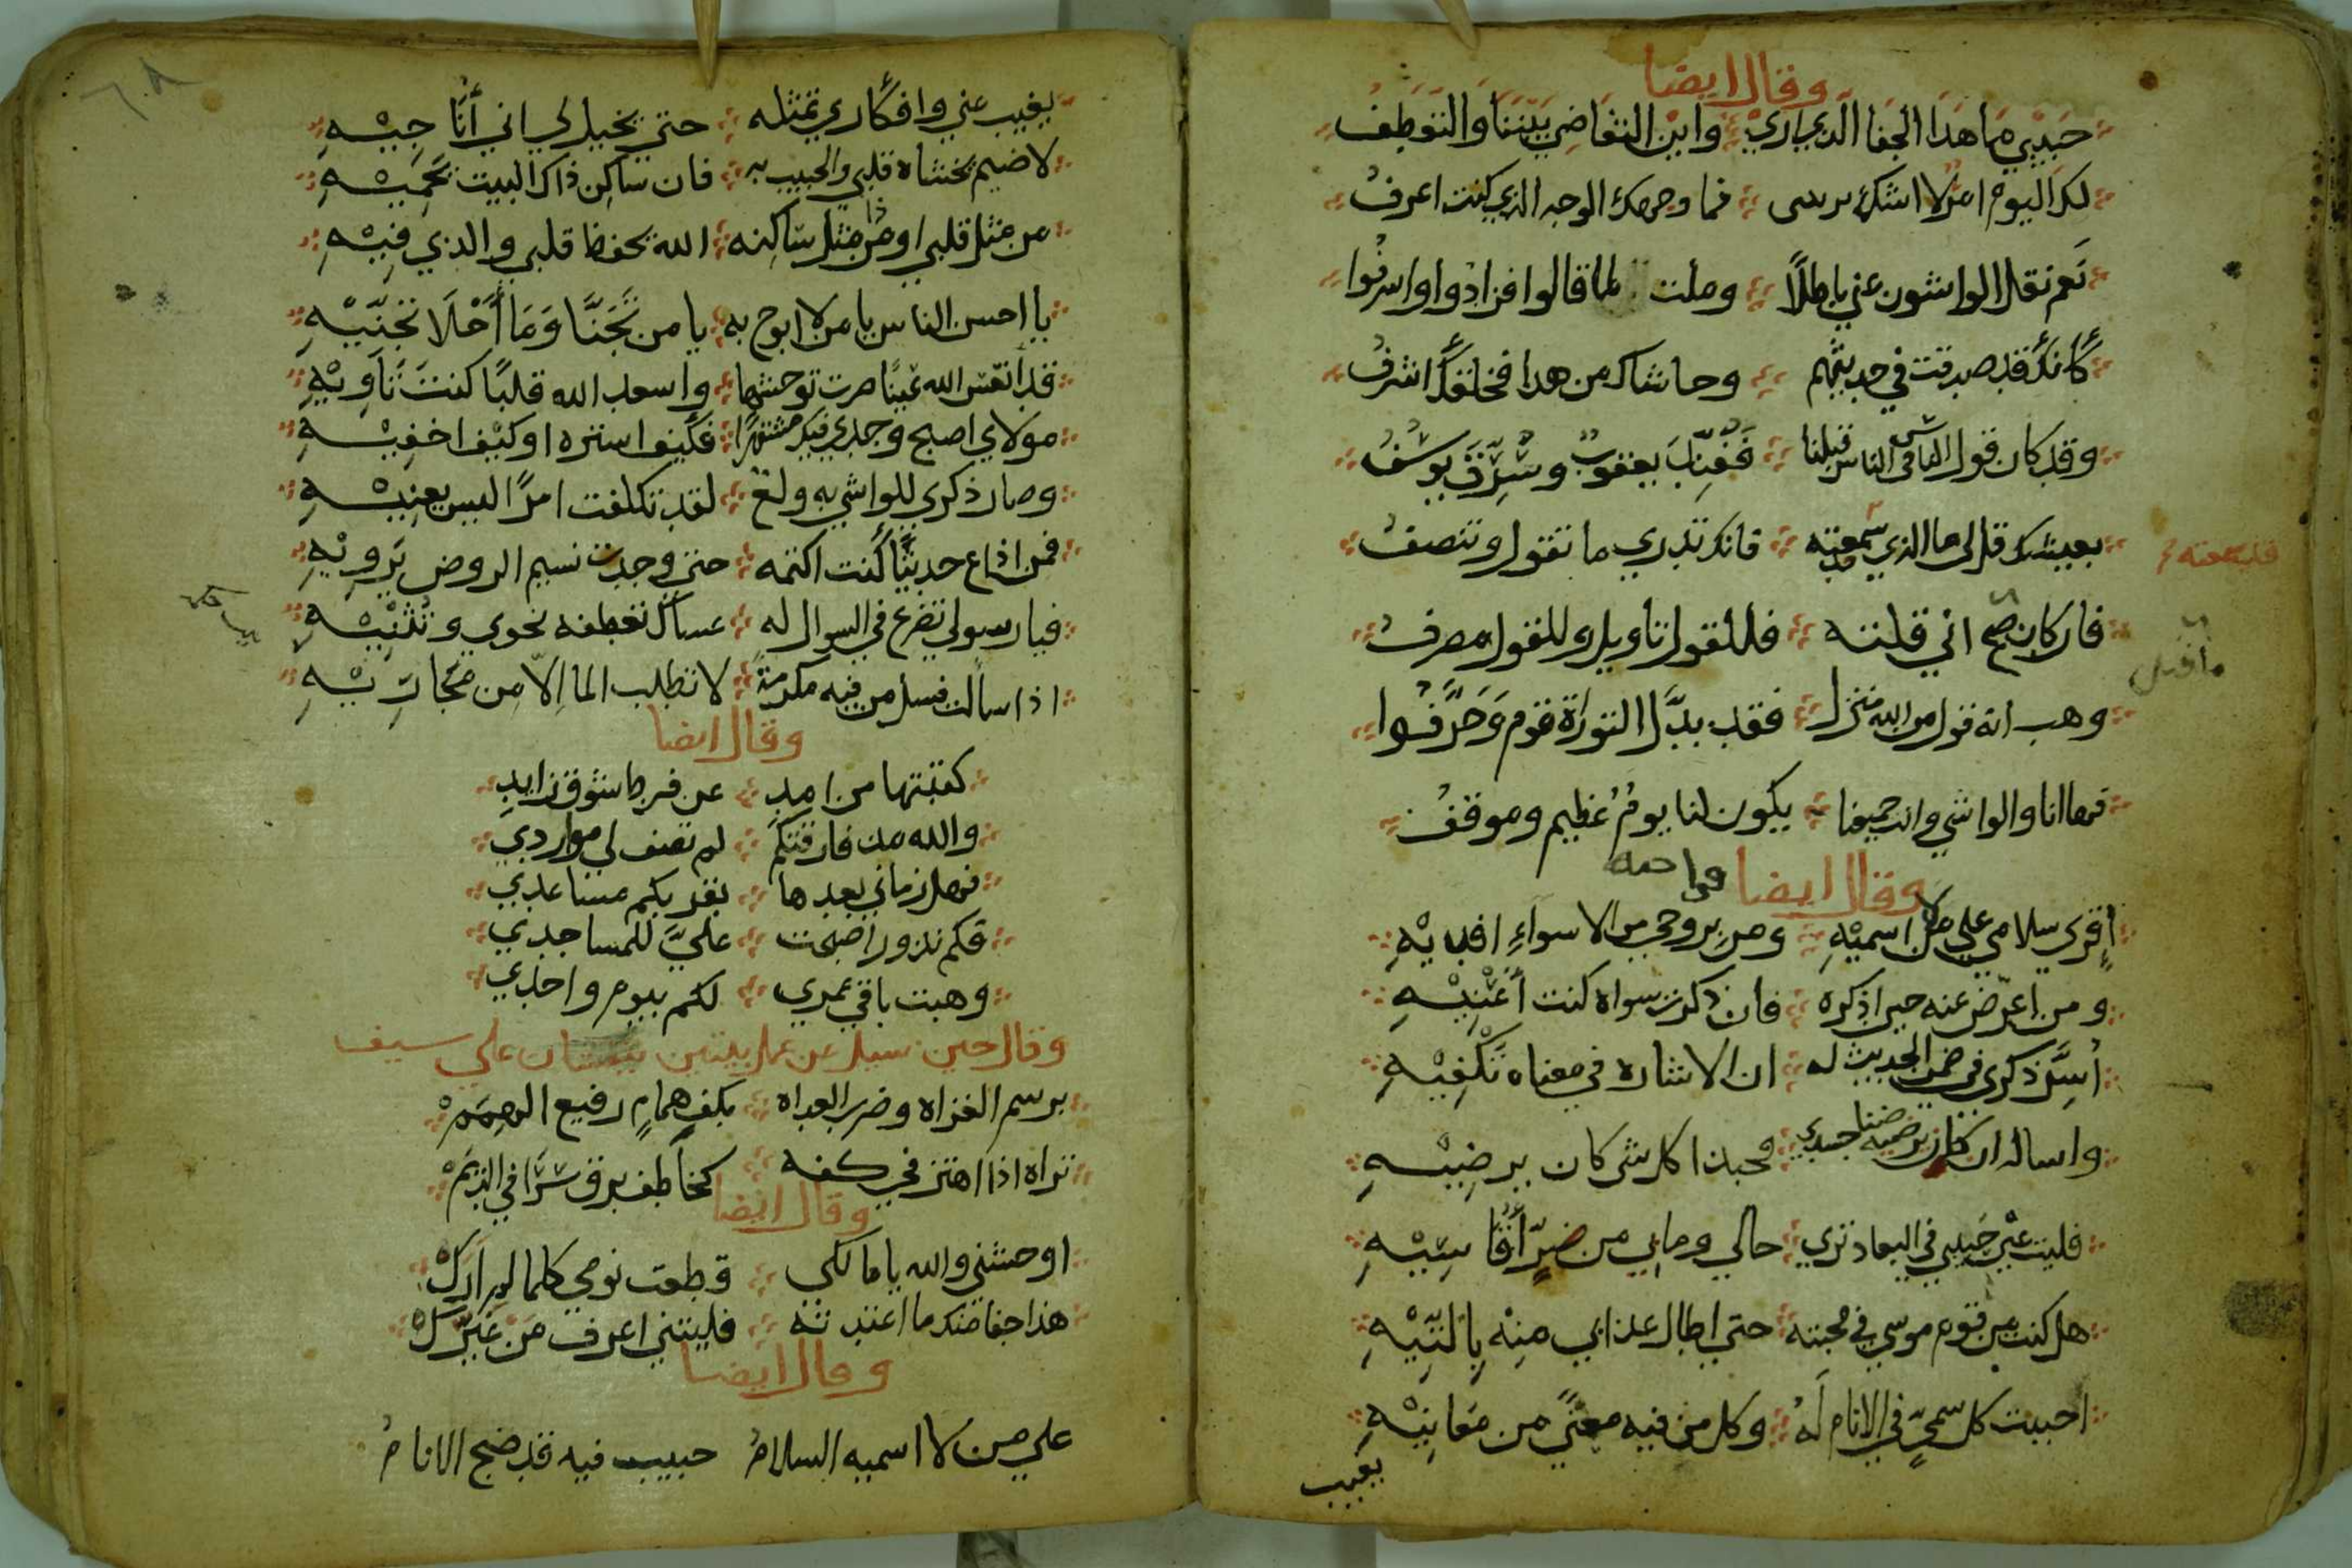 وقال ايضا
حبيبي ما هذا الجفا الذي اري وابن التغاضي بيننا والتعطف
لك اليوم امر لا اشك يريبني فما وجهك الوجه الذي كنت اعرف
نعم نقل الواشون عني باطلا وملت لما قالوا فزادوا واسرفوا
كانك قد صدقت في حديثهم وحاشاك من هذا فخلقك اشرف
وقد كان قول الناس في الناس قبلنا ففند يعقوب وشرق يوسف
بعيشك قل لي ما الذي سمعته فانك تدري ما تقول وتنصف
فان كان صح اني قلته فللقول تاويل وللقول مصرف
وهب انه قول من الله منزل فقد بدل التوراة قوم وحرفوا
فها انا والواشي وانت جميعنا يكون لنا يوم عظيم وموقف
وقال ايضا
اقري سلامي علي من لا اسميه ومن بروحي من الاسواء افديه
ومن اعرض عنه حين اذكره فان ذكرت سواه كنت اعنيه
اسر ذكري في ضمن الحديث له ان الاشاره في معناه تكفيه
واساله ان كان يرضيه ضنا جسدي فحبذا كل شي كان يرضيه
فليت عين حبيبي في البعاد تري حالي وما بي من ضر اقاسيه
هل كنت من قوم موسي في محبته حتي اطال عذابي منه بالتيه
احببت كل سمي في الانام له وكل من فيه معني من معانيه
يغيب
يغيب عني وافكاري تمثله حتي يخيل لي اني اناجيه
لا ضيم يخشاه قلبي والحبيب به فان ساكن ذاك البيت يحميه
من مثل قلبي او من مثل ساكنه الله يحفظ قلبي والذي فيه
يا احسن الناس يا من لا ابوح به يا من تجنا وما احلا تجنيه
قد اتعس الله عينا صرت توحشها واسعد الله قلبا كنت تاويه
مولاي اصبح وجدي فيك مشتهرا فكيف استره او كيف اخفيه
وصار ذكري للواشي به ولع لقد تكلفت امرا ليس يعنيه
فمن اذاع حديثا كنت اكتمه حتي وجدت نسيم الروض يرويه
فيا رسولي تضرع في السوال له عساك تعطفه نحوي وتثنيه
اذا سالت فسل من فيه مكرمة لا تطلب الما الا من مجاريه
وقال ايضا
كتبتها من امد عن فرط شوق زايد
والله مذ فارقتكم لم تصف لي مواردي
فهل زماني بعدها بقربكم مساعدي
فكم نذور اصبحت علي للمساجدي
وهبت باقي عمري لكم بيوم واحدي
وقال حين سيل عن عمل بيتين علي سيف
برسم الغزاه وضرب العداه بكف همام رفيع الهمم
تراه اذا اهتز في كفه كخاطف برق سرا في الديم
وقال ايضا
اوحشتني والله يا مالكي قطعت نومي كلما لم ارك
هذا جفا منك ما اعتدته فليتني اعرف من غيرك
وقال ايضا
علي من لا اسميه السلام حبيب فيه قد ضج الانام